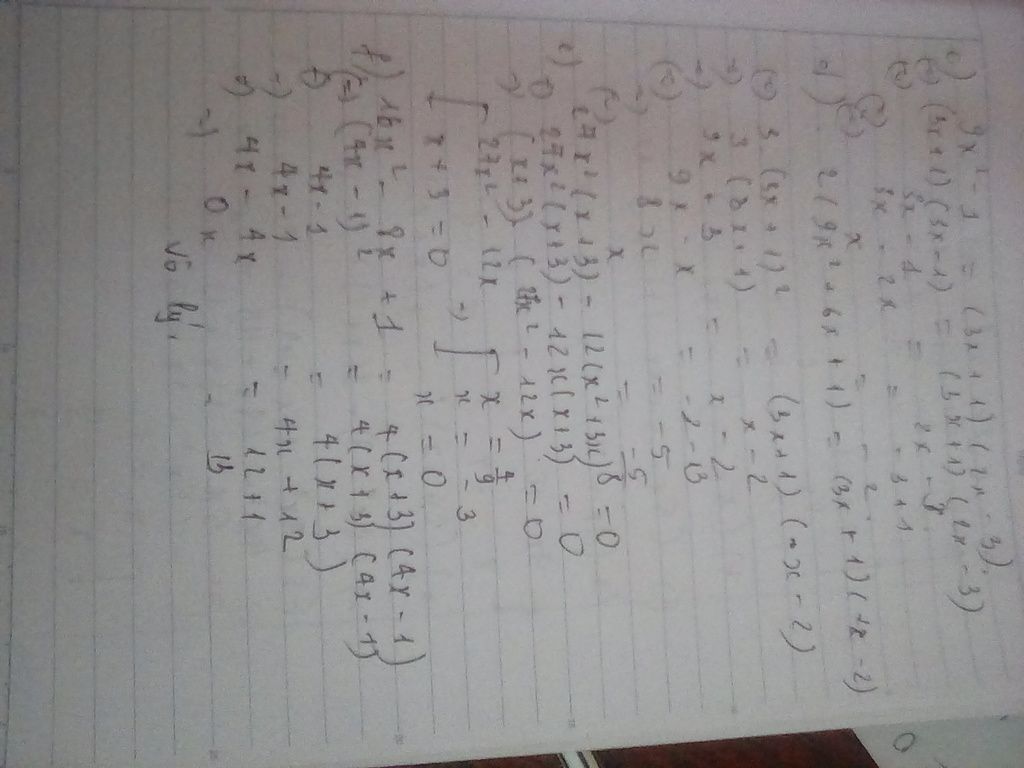 c) 9x² - 1 = (3x+1)(2x-3).
(=) (3x+1)(3x-1) = (3x+1)(2x-3)
(=) 3x-1 = 2x-3
(=) 3x-2x = -3+1
(=) x = -2
d) 2(9x²+6x+1) = (3x+1)(x-2)
(=) 3.(3x+1)² = (3x+1)(x-2)
=) 3(3x+1) = x-2
=) 9x+3 = x-2
(=) 9x-x = -2-3
=) 8x = -5
(=) x = -5/8
e) 27x²(x+3) - 12(x²+3x) = 0
=) 27x²(x+3) - 12x(x+3) = 0
=) (x+3)(27x²-12x) = 0
[ 27x² - 12x =) [ x = 4/9 x = -3
x+3 = 0 x = 0
f) 16x² - 8x + 1 = 4(x+3)(4x-1)
(=) (4x-1)² = 4(x+3)(4x-1)
=) 4x-1 = 4(x+3)
=) 4x-1 = 4x+12
=) 4x-4x = 12+1
=) 0x = 13
Vô lý.